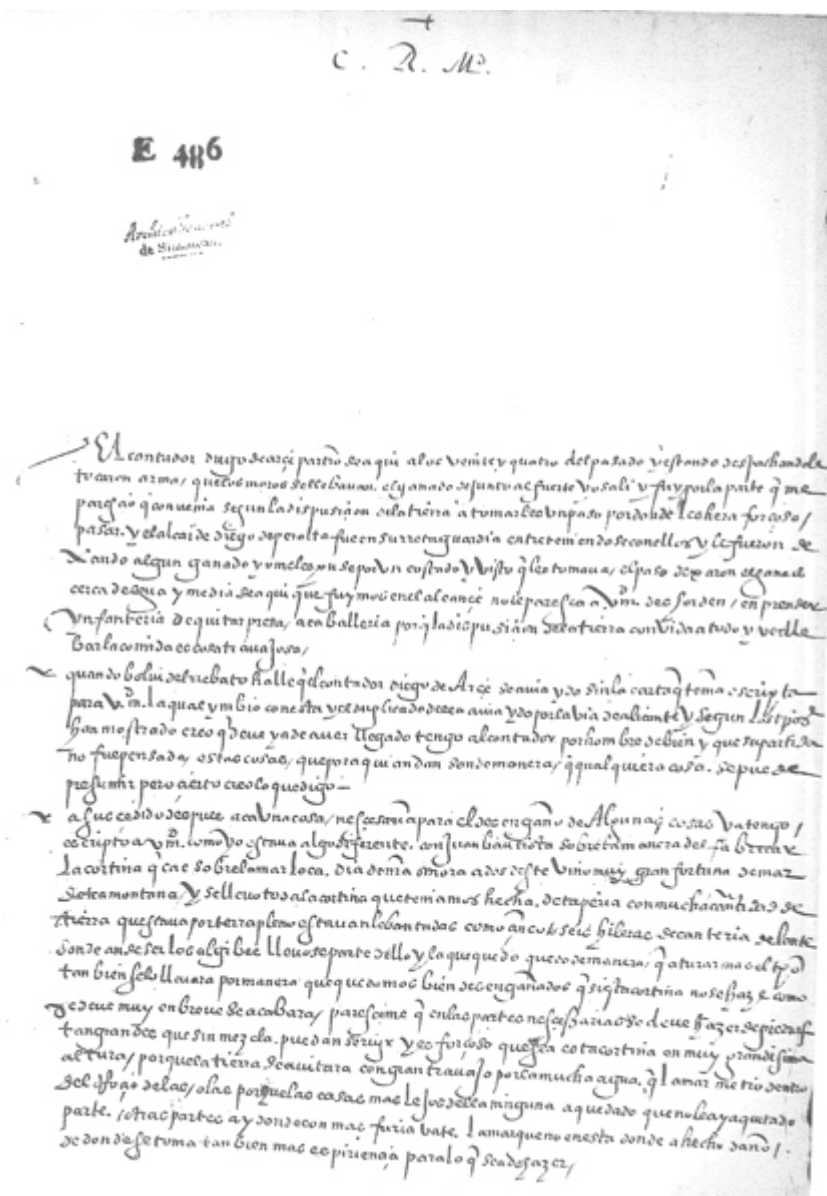 C. R. Md.
E 486
Archivo General
de Simancas
El contador diego de arçe partio de aqui a los veinte y quatro del pasado y estando despachandole
tocaron arma, que los moros se llebavan el ganado de junto al fuerte yo sali y fuy por la parte q̃ me
paresçio q̃ convenia segun la dispusiçion de la tierra a tomarles un paso por donde les hera forçoso /
pasar, y el alcaide diego de peralta fue en su rretaguardia entretemiendose con ellos y le fueron de
xando algun ganado y un costado y visto q̃ les tomava, el paso dexaron el ganado
cerca de legua y media de aqui que fuymos en el alcançe no le paresca a V.m. desorden, en prender
ynfanteria de quitar presa, a caballeria por q̃ la dispusiçion de la tierra convida a todo y
la comida es cosa trauajosa /
quando bolui del rrebato halle q̃ el contador diego de Arçe se avia ydo sin la carta q̃ tenia escripta
para V.m. la qual ymbio con esta y el duplicado de ella avia ydo por la via de alicante y segun
ha mostrado creo q̃ deve ya de aver llegado tengo al contador por hombre de bien y que su partida
no fue pensada, estas cosas, que por aqui andan son de manera, q̃ qual quiera cosa, se puede
presumir pero çierto creo lo que digo —
a suçedido despues aca una cosa, nesçesaria para el desengaño de Algunas cosas ya tengo /
escripto a V.m. como yo estava algo diferente, con Juan bautista sobre la manera del fabricar
la cortina q̃ cae sobre la mar loca, dia dos deste vino muy gran fortuna de mar
de tramontana, y se llevo toda la cortina que teniamos hecha, de taperia con mucha cantidad de
tierra que stava por terrapleno estavan lebantadas como çinco o seis hileras de canteria delante
donde an de ser los algibes llevose parte dello y la que quedo quedo de manera, q̃ a turar mas el tp̃o
tambien se lo llevara por manera que quedamos bien desengañados q̃ si esta cortina no se haze como
se deve muy en breve se acabara, paresçeme q̃ en las partes nesçesarias se deve hazer de piedras
tan grandes que sin mezcla, puedan servir y es forçoso que sea esta cortina en muy grandisima
altura, porque la tierra se quitara con gran travajo por la mucha agua, q̃ la mar metio dentro
del de las, olas porque las casas mas lejos della ninguna a quedado que no le aya quitado
parte, otras partes ay donde con mas furia vate, la mar que no en esta donde a hecho daño /.
de donde se toma tanbien mas espiriençia para lo q̃ se a de hazer /